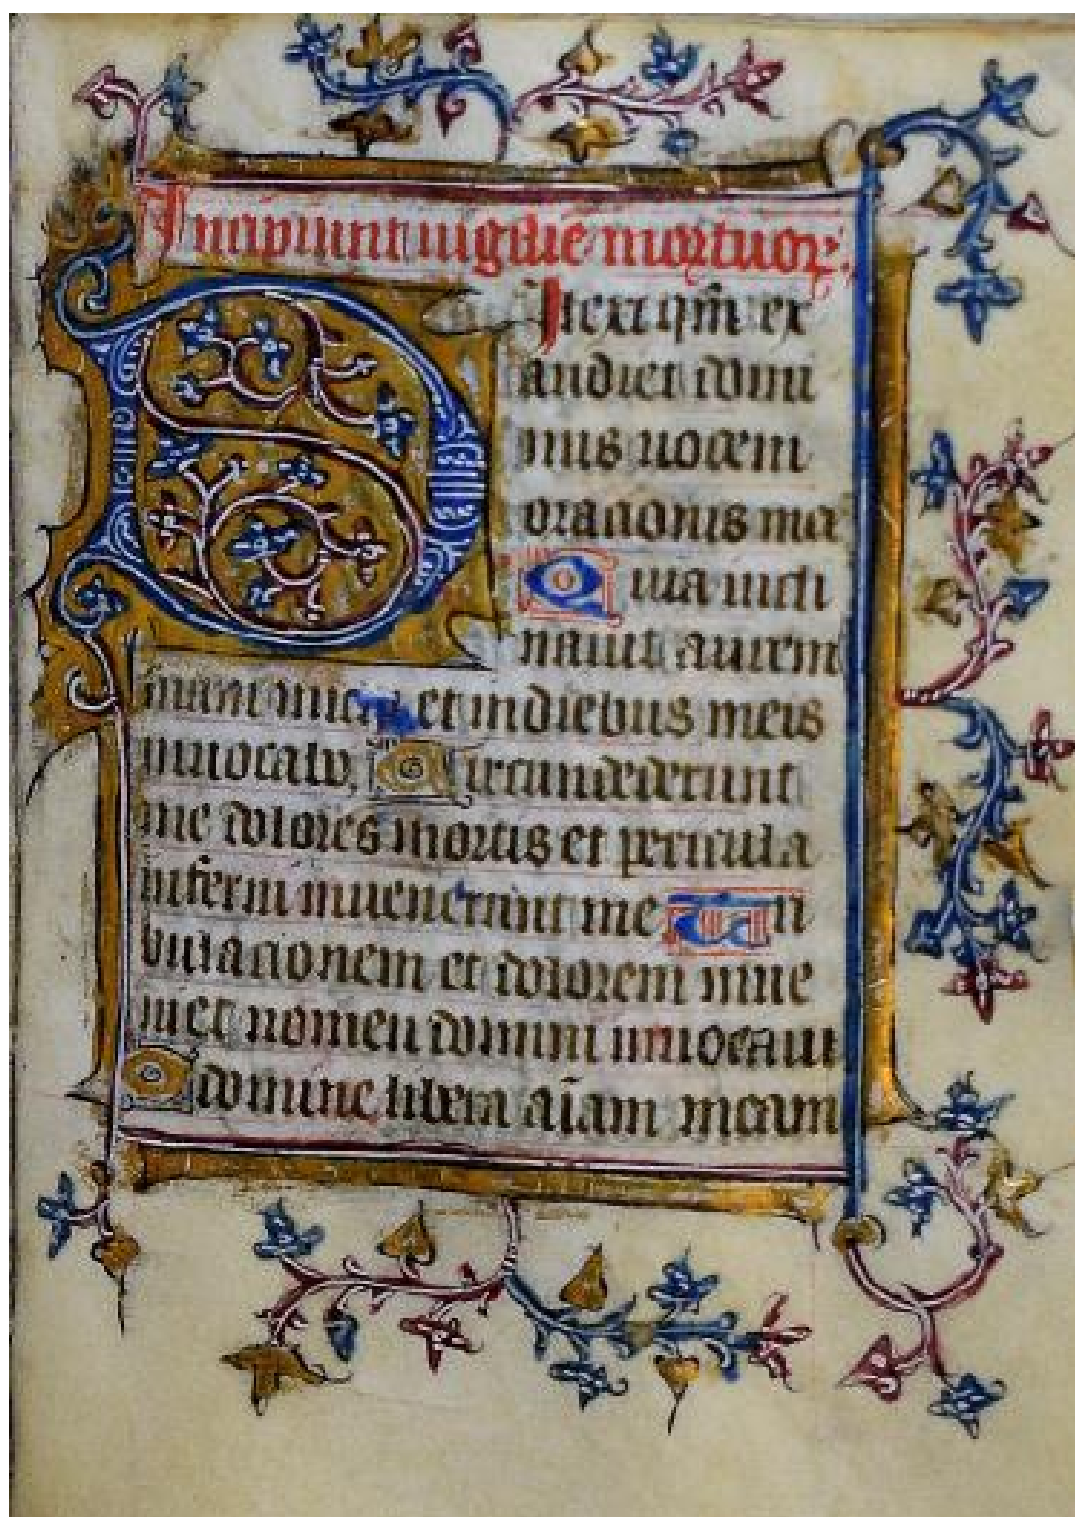 Incipiunt vigilie mortuor
Dilexi qm̄ ex
audiet domi
nus uocem
orationis mee
Quia incli
nauit aurem
suam michi et in diebus meis
inuocabo, Circumdederunt
me dolores mortis et pericula
inferni inuenerunt me Tri
bulacionem et dolorem inue
ni et nomen domini inuocaui
O domine libera aīam meam